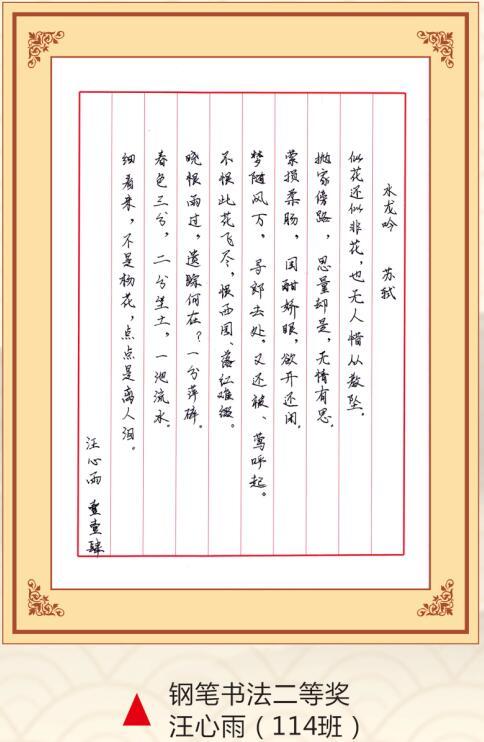 水龙吟 苏轼
似花还似非花，也无人惜从教坠。
抛家傍路，思量却是，无情有思。
萦损柔肠，困酣娇眼，欲开还闭。
梦随风万，寻郎去处，又还被、莺呼起。
不恨此花飞尽，恨西园、落红难缀。
晓恨雨过，遗踪何在？一分萍碎。
春色三分，二分尘土，一池流水。
细看来，不是杨花，点点是离人泪。
汪心雨 壹壹肆
钢笔书法二等奖
汪心雨（114班）